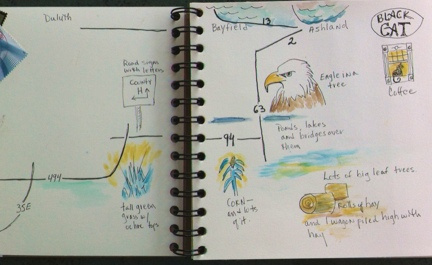 Duluth
Road signs
with letters
County
H
494
35E
tall green
grass w/
ochre tops
Bayfield
13
Ashland
2
BLACK
CAT
Coffee
Eagle in a
tree
63
94
Ponds, lakes
and bridges over
them
CORN-
and lots
of it
Lots of big leaf trees
Rolls of hay
and 1 wagon piled high with
hay